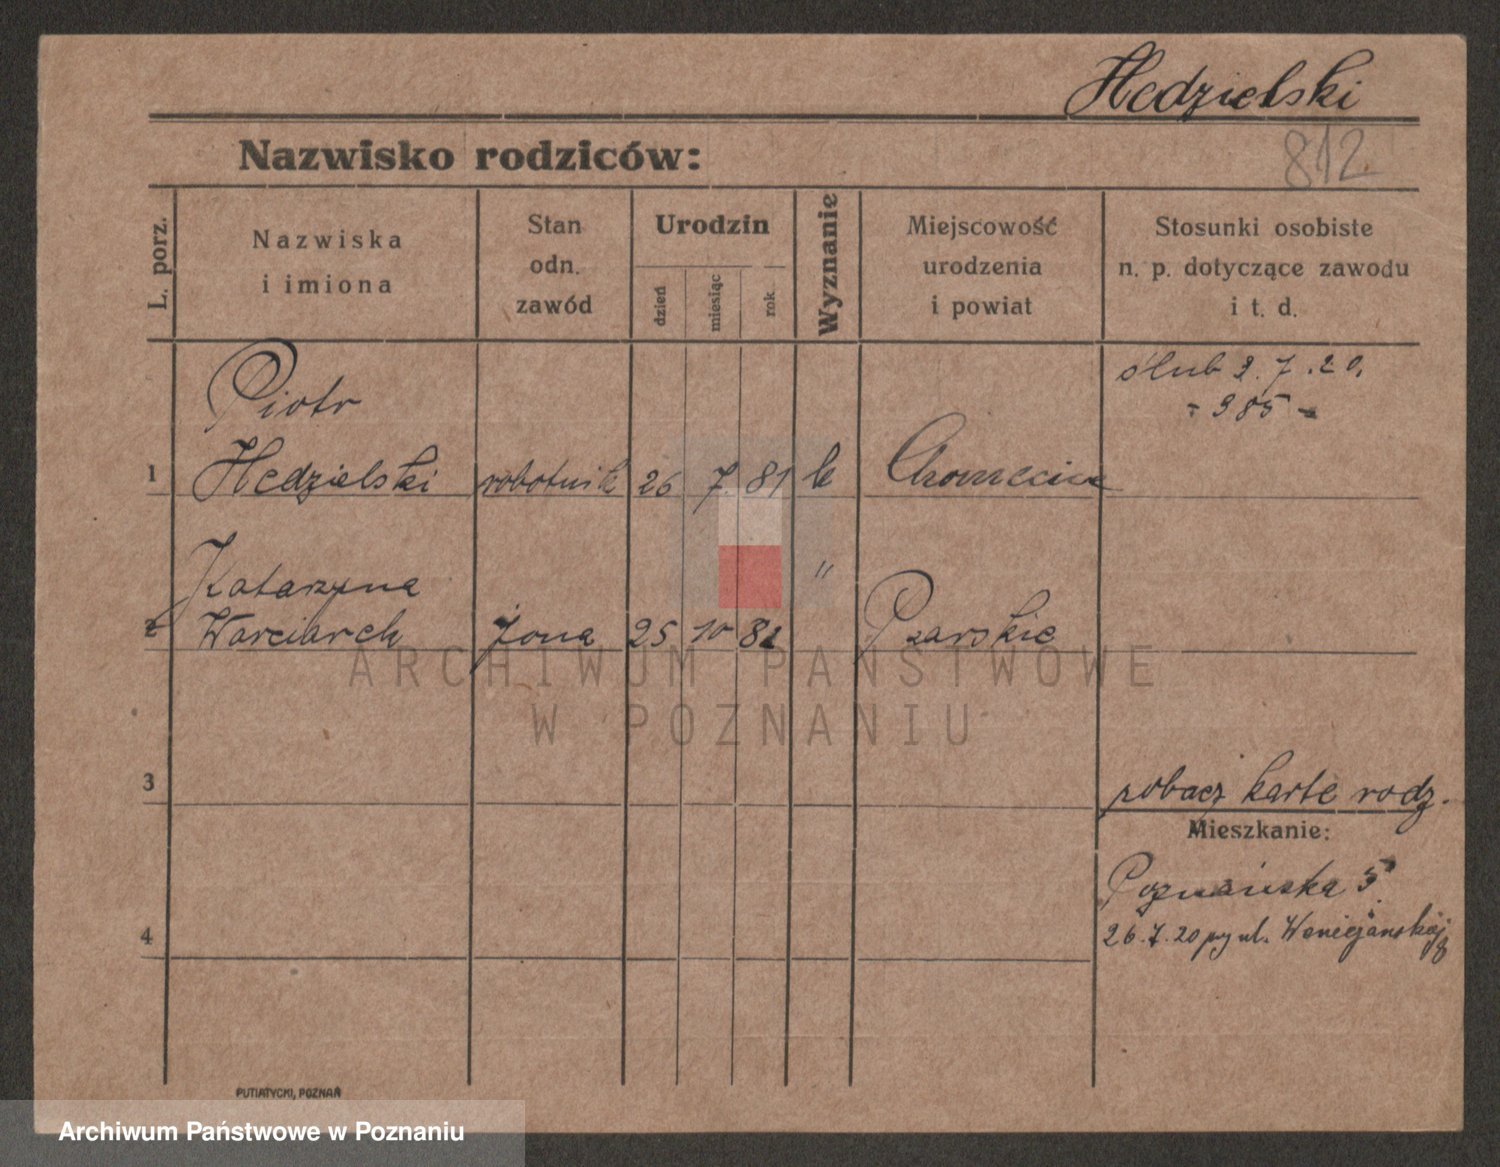 Hedzielski
Nazwisko rodziców:
812.
L. porz.
Nazwiska
i imiona
Stan
odn.
zawód
Urodzin
dzień
miesiąc
rok
Wyznanie
Miejscowość
urodzenia
i powiat
Stosunki osobiste
n. p. dotyczące zawodu
i t. d.
ślub 2.7.20.
- 385 -
Piotr
1 Hedzielski robotnik 26 7. 81 k
"
Katarzyna
2 żona 25 10 82 Psarskie
3
zobacz karte rodz.
Mieszkanie:
Poznańska 5
4
26.7.20 8
PUTIATYCKI, POZNAŃ
ARCHIWUM PAŃSTWOWE
W POZNANIU
Archiwum Państwowe w Poznaniu